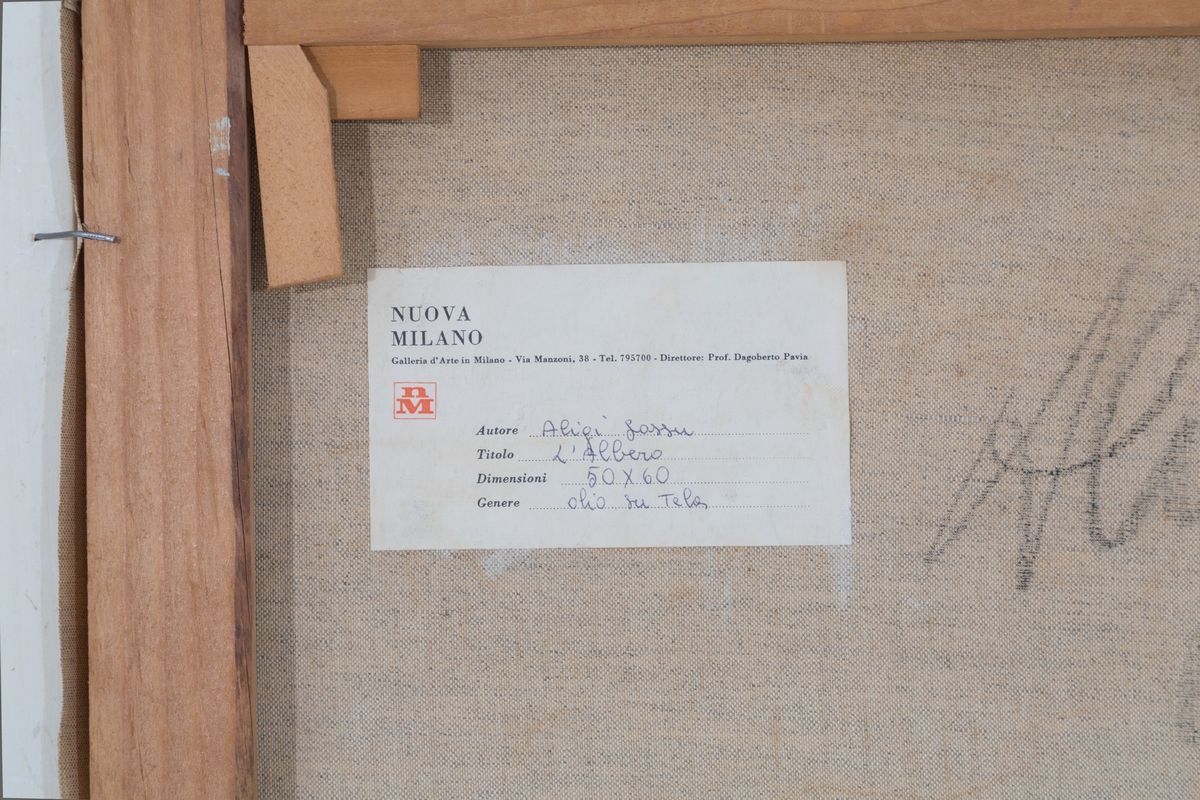 NUOVA
MILANO
Galleria d'Arte in Milano - Via Manzoni, 38 - Tel. 795700 - Direttore: Prof. Dagoberto Pavia
nM
Autore Aligi Sassu
Titolo L'Albero
Dimensioni 50 X 60
Genere olio su Tela